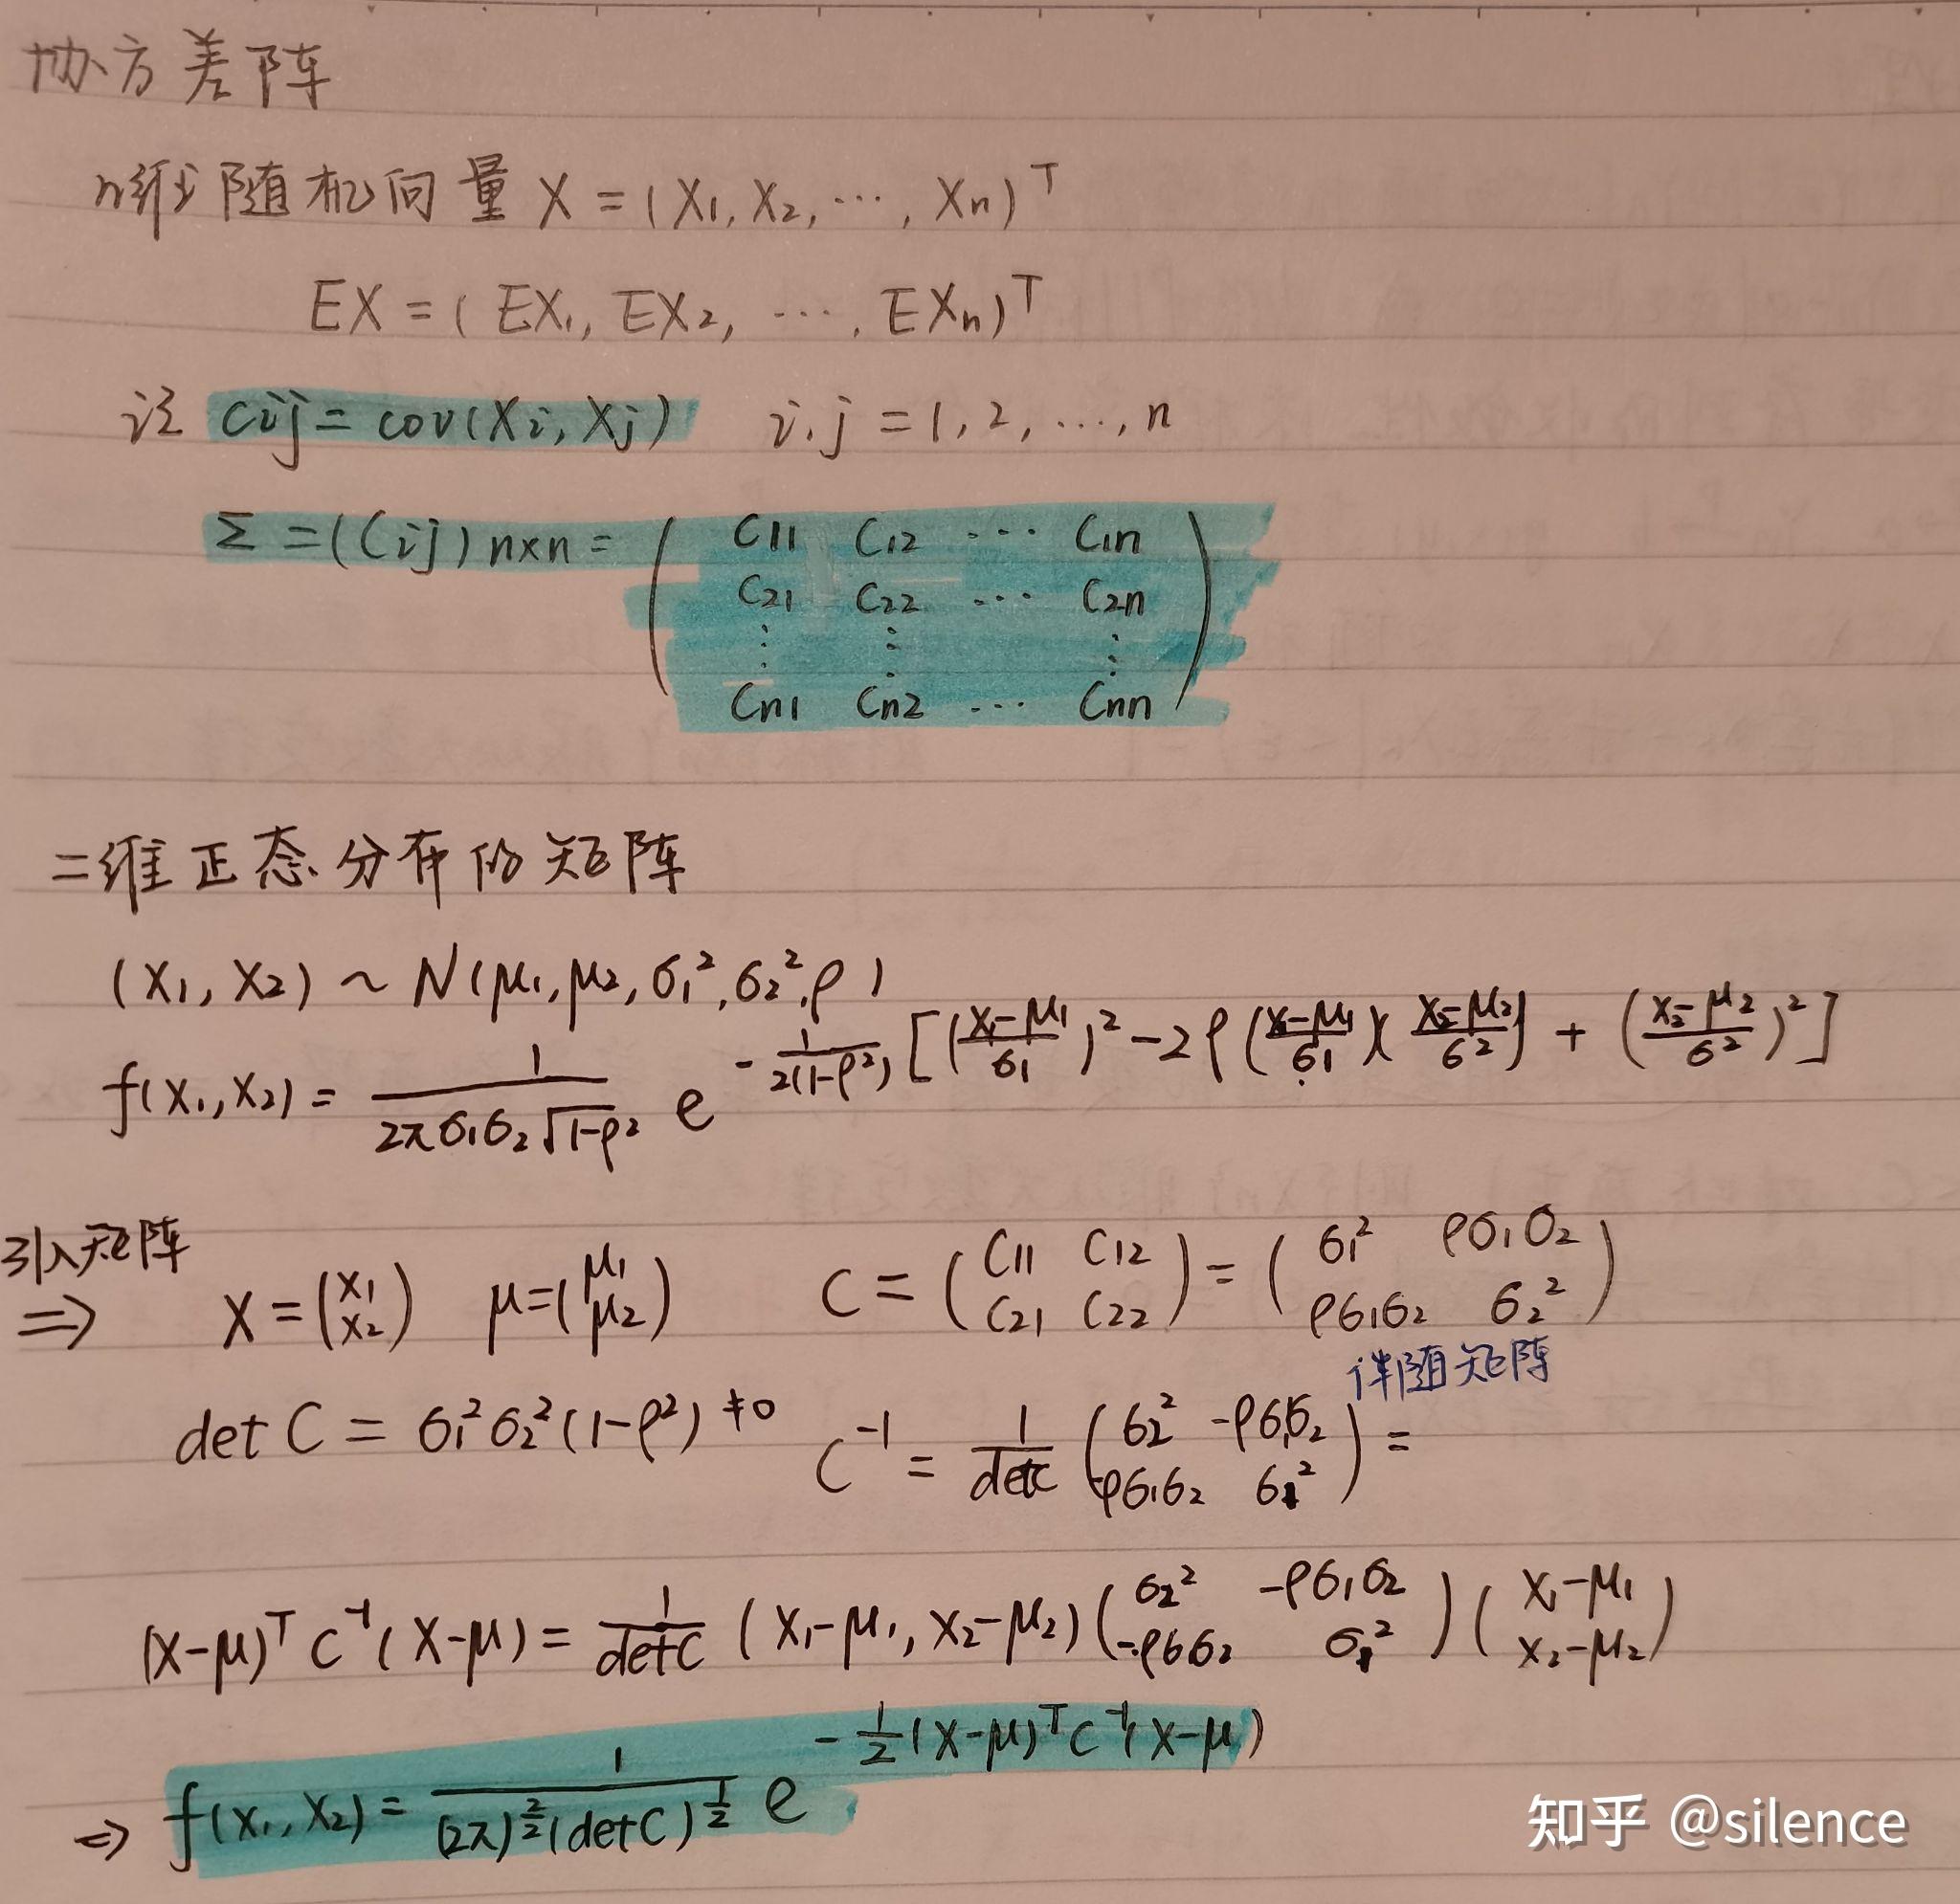 协方差阵
n维随机向量 X = (X₁, X₂, …, Xn)ᵀ
EX = (EX₁, EX₂, …, EXn)ᵀ
记 Cij = cov(Xi, Xj) i, j = 1, 2, …, n
Σ = (Cij)n×n = ( C11 C12 … C1n
C21 C22 … C2n
⋮ ⋮ ⋮
Cn1 Cn2 … Cnn )
二维正态分布的矩阵
(X₁, X₂) ~ N(μ₁, μ₂, σ₁², σ₂², ρ)
f(x₁, x₂) = 1/(2πσ₁σ₂√(1-ρ²)) e^{-1/(2(1-ρ²)) [((x₁-μ₁)/σ₁)² - 2ρ((x₁-μ₁)/σ₁)((x₂-μ₂)/σ2) + ((x₂-μ₂)/σ2)²]}
引入矩阵
⇒ X = (x₁ x₂) μ = (μ₁ μ₂) C = (C11 C12 C21 C22) = (σ₁² ρσ₁σ₂ ρσ₁σ₂ σ₂²)
伴随矩阵
det C = σ₁²σ₂²(1-ρ²) ≠0 C⁻¹ = 1/detC (σ₂² -ρσ₁σ₂ -ρσ₁σ₂ σ₁²) =
(X-μ)ᵀ C⁻¹ (X-μ) = 1/detC (X₁-μ₁, X₂-μ₂) (σ₂² -ρσ₁σ₂ -ρσ₁σ₂ σ₁²) (X₁-μ₁ X₂-μ₂)
⇒ f(x₁, x₂) = 1/((2π)^{2/2}(detC)^{1/2}) e^{-1/2(X-μ)ᵀC⁻¹(X-μ)}
知乎 @silence